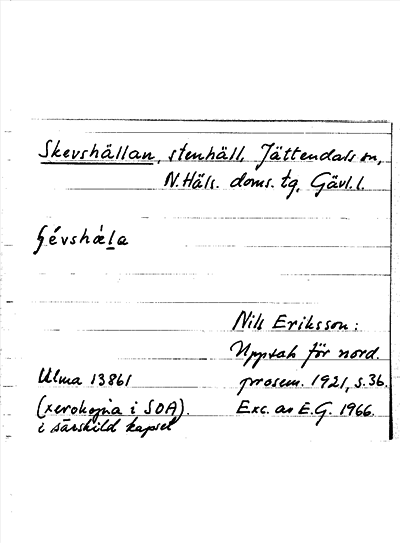 Skevshällan, stenhäll, Jättendals sn,
N. Häls. doms. tg, Gävl. l.
ʃévshæla
Nils Eriksson:
Uppsats för nord.
Ulma 13861 prosem. 1921, s. 36.
(xerokopia i SOA). Exc. av E.G. 1966.
i särskild kapsel